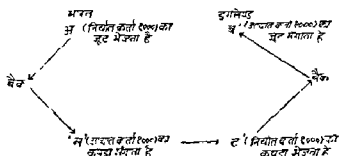 भारत
अ (निर्यात कर्ता १०००) का
जूट भेजता है
इंगलैण्ड
ब (आयात कर्ता १०००) का
जूट मंगाता है
बैंक
बैंक
(आयात कर्ता १०००) का
कपड़ा
है
(निर्यात कर्ता १०००) का
कपड़ा भेजता है